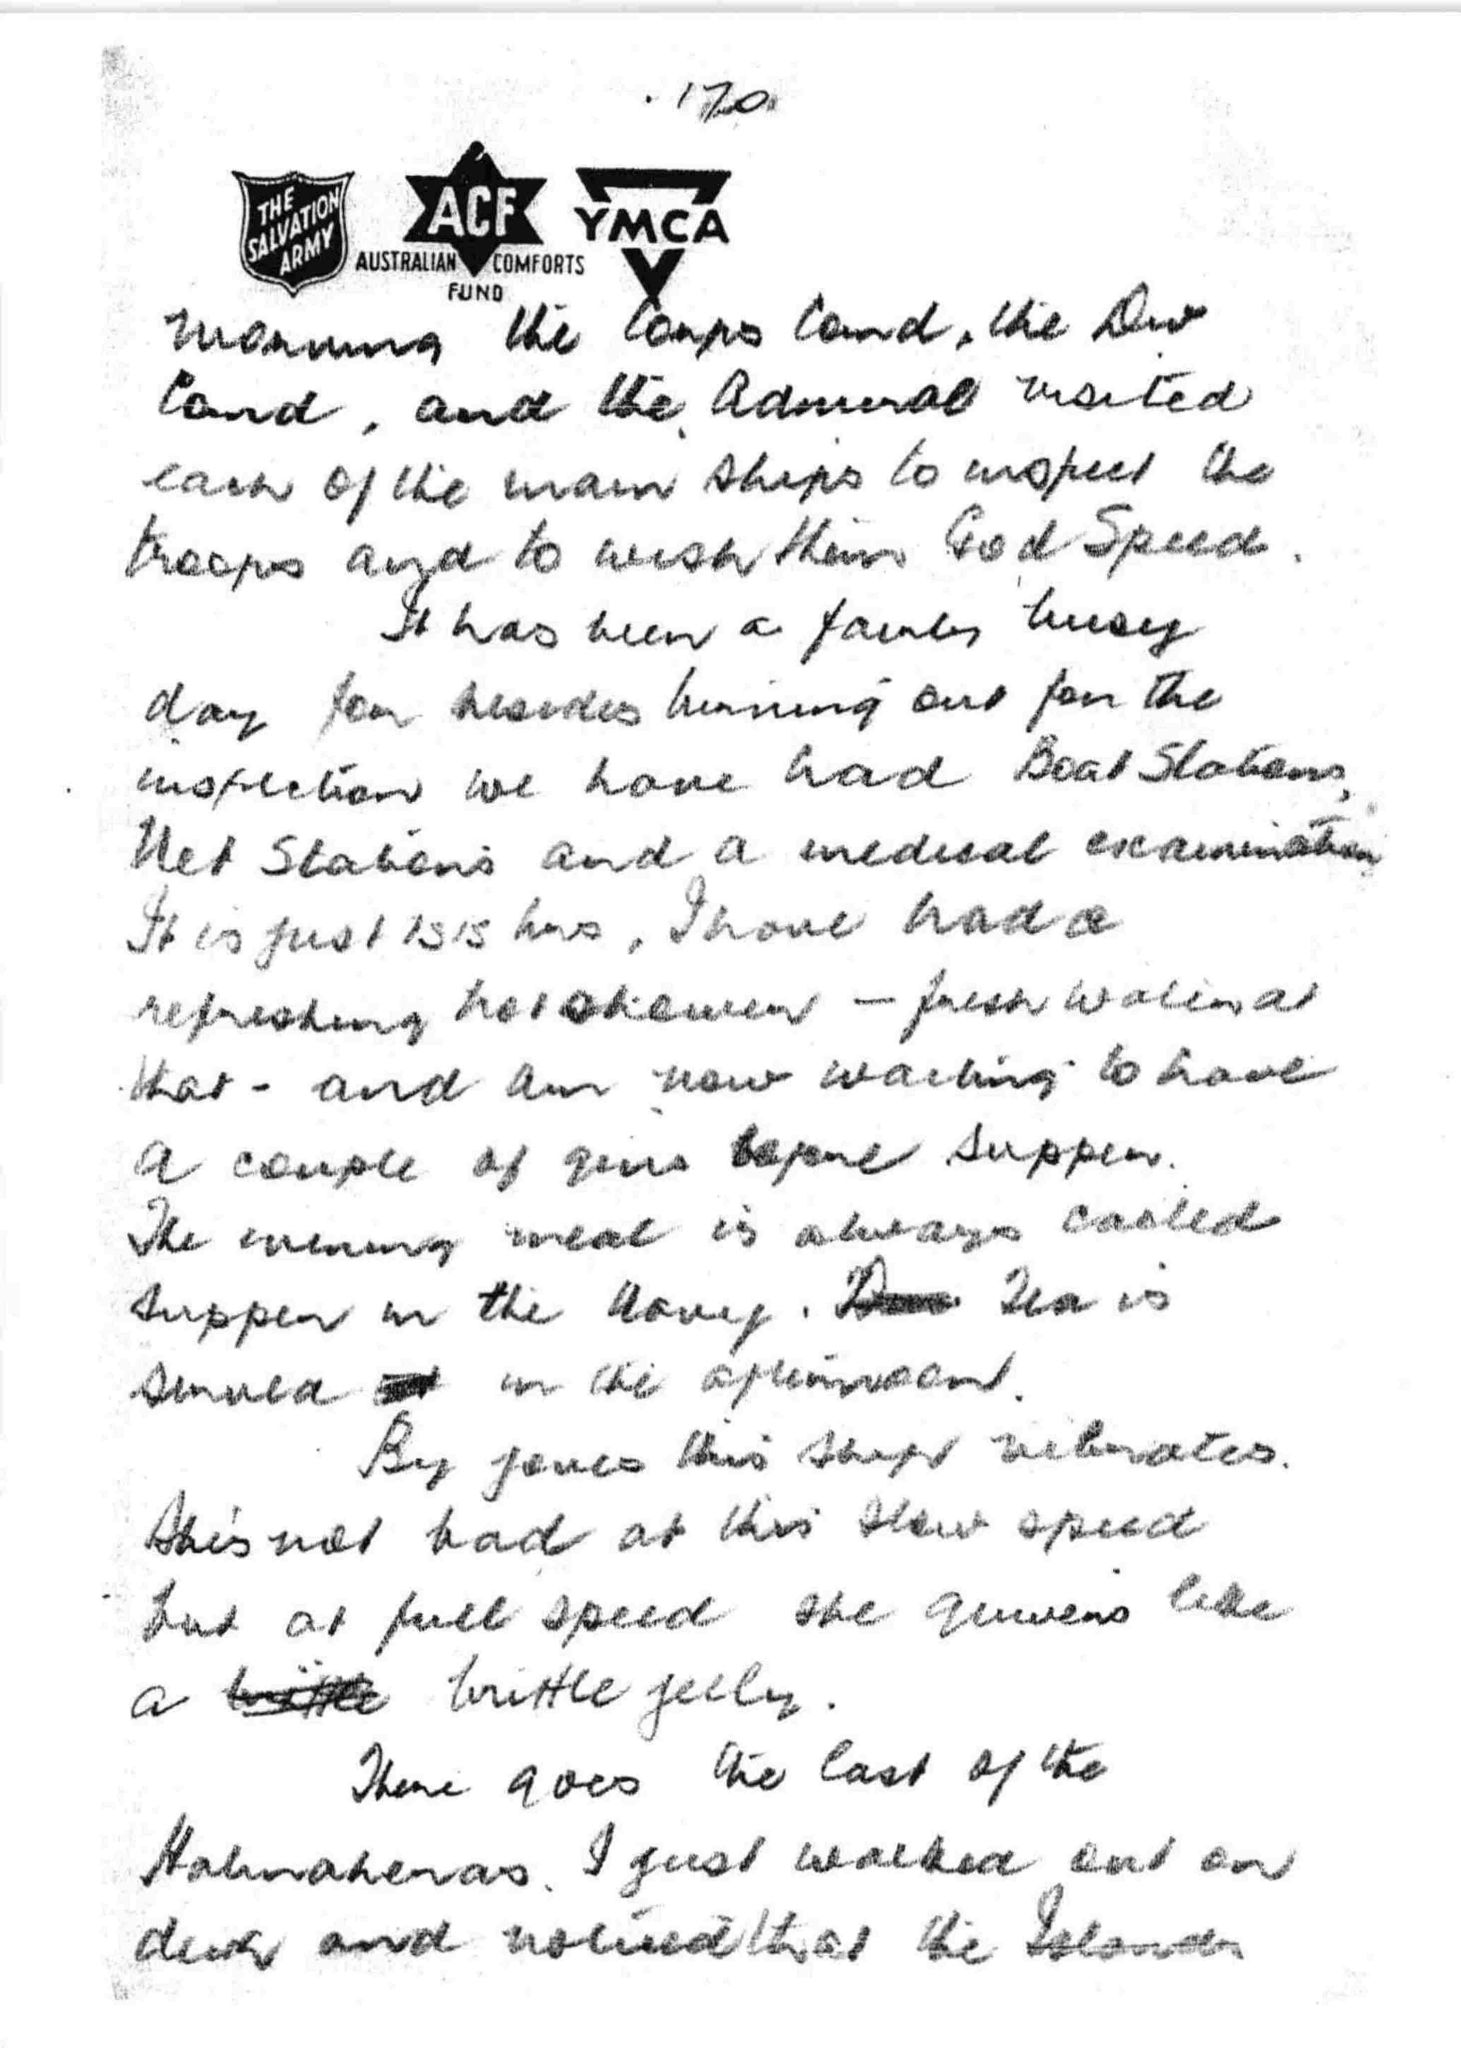 170.
THE SALVATION ARMY
ACF
AUSTRALIAN COMFORTS FUND
YMCA
morning the Corps Comd, the Div
Comd, and the Admiral visited
each of the main ships to inspect the
troops and to wish them God Speed.
It has been a fairly busy
day for besides turning out for the
inspection we have had Boat Stations,
Net Stations and a medical examination
It is just 1515 hrs, I have had a
refreshing hot shower – fresh water at
that - and am now waiting to have
a couple of gins before supper.
The evening meal is always called
supper in the Navy. Tea is
served in the afternoon.
By joves this ship vibrates.
She's not bad at this slow speed
but at full speed she quivers like
a brittle jelly.
There goes the last of the
Halmaheras. I just walked out on
deck and noticed that the Islands